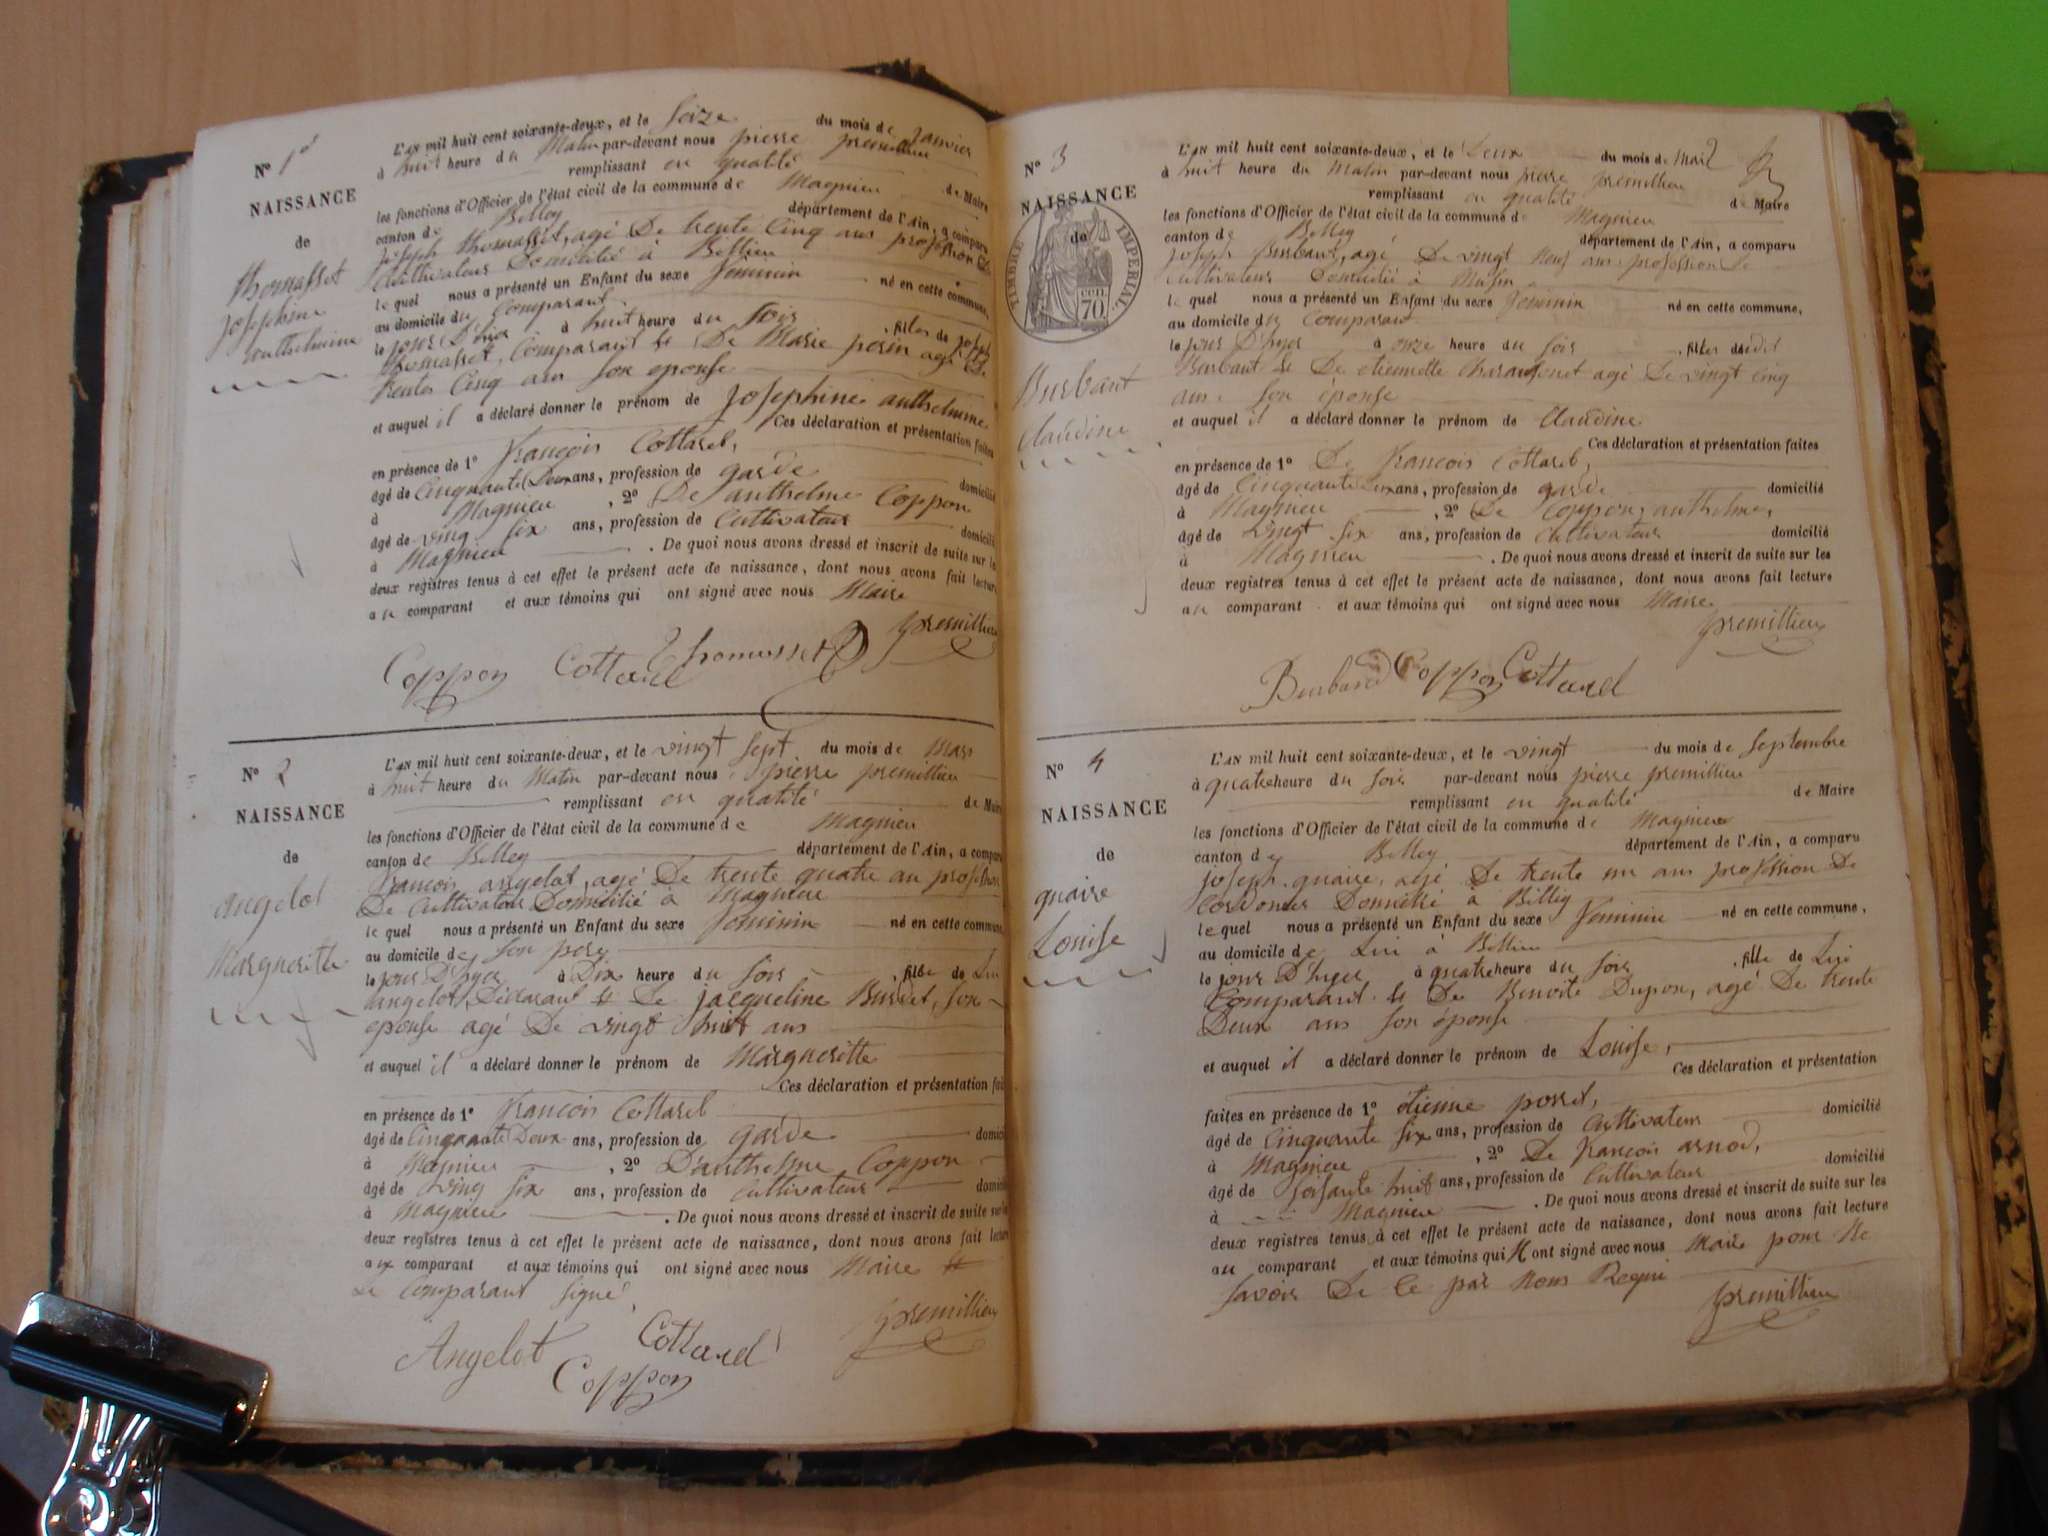 N° 1er
NAISSANCE
de
thomasset
josephine
anthelmine
L'AN mil huit cent soixante-deux, et le seize du mois de janvier
à huit heure du Matin par-devant nous pierre premillieu
remplissant en qualité de Maire
les fonctions d'Officier de l'état civil de la commune de Magnieu
canton de Belley département de l'Ain, a comparu
joseph thomasset, agé De trente Cinq ans profession De
Cultivateur Domicilié à Billieu
le quel nous a présenté un Enfant du sexe féminin né en cette commune,
au domicile du Comparant
le jour D'hier à huit heure du soir , fille de joseph
thomasset, Comparant & De Marie perin agé De
trente Cinq ans son epouse
et auquel il a déclaré donner le prénom de josephine anthelmine
Ces déclaration et présentation faites
en présence de 1° françois Cottarel,
âgé de Cinquante Deux ans, profession de garde domicilié
à Magnieu , 2° De anthelme Coppon
âgé de ving six ans, profession de Cultivateur domicilié
à Magnieu . De quoi nous avons dressé et inscrit de suite sur les
deux registres tenus à cet effet le présent acte de naissance, dont nous avons fait lecture
au comparant et aux témoins qui ont signé avec nous Maire
premillieu
Coppon Cottarel Thomasset
N° 2
NAISSANCE
de
angelot
Margueritte
L'AN mil huit cent soixante-deux, et le vingt sept du mois de Mars
à huit heure du Matin par-devant nous pierre premillieu
remplissant en qualité de Maire
les fonctions d'Officier de l'état civil de la commune de Magnieu
canton de Belley département de l'Ain, a comparu
françois angelot, agé De trente quatre an profession
De Cultivateur Domicilié à Magnieu
le quel nous a présenté un Enfant du sexe féminin né en cette commune
au domicile de son pere
le jour D'hyer à Dix heure du soir , fille de Lui
angelot, Déclarant & De jacqueline Burdet, son
epouse agé De vingt huit ans
et auquel il a déclaré donner le prénom de Margueritte
Ces déclaration et présentation fai
en présence de 1° françois Cottarel
âgé de Cinquante Deux ans, profession de garde domici
à Magnieu , 2° D'anthelme Coppon
âgé de ving six ans, profession de Cultivateur domici
à Magnieu . De quoi nous avons dressé et inscrit de suite sur
deux registres tenus à cet effet le présent acte de naissance, dont nous avons fait lecture
aux comparant et aux témoins qui ont signé avec nous Maire &
Le Comparant signé
premillieu
Angelot Cottarel
Coppon
N° 3
NAISSANCE
de
TIMBRE IMPERIAL
70 cen.
Burbant
Claudine
L'AN mil huit cent soixante-deux, et le Deux du mois de mai
à huit heure du Matin par-devant nous pierre premillieu
remplissant en qualité de Maire
les fonctions d'Officier de l'état civil de la commune de Magnieu
canton de Belley département de l'Ain, a comparu
joseph Burbant, agé De vingt neuf ans profession De
Cultivateur Domicilié à
le quel nous a présenté un Enfant du sexe féminin né en cette commune,
au domicile du Comparant
le jour D'hyer à onze heure du soir , fille dudit
Burbant & De etiennette agé De vingt Cinq
ans son épouse
et auquel il a déclaré donner le prénom de Claudine
Ces déclaration et présentation faites
en présence de 1° De françois Cottarel,
âgé de Cinquante Deux ans, profession de garde domicilié
à Magnieu , 2° De Coppon, anthelme,
âgé de vingt six ans, profession de Cultivateur domicilié
à Magnieu . De quoi nous avons dressé et inscrit de suite sur les
deux registres tenus à cet effet le présent acte de naissance, dont nous avons fait lecture
au comparant et aux témoins qui ont signé avec nous Maire
premillieu
Burband Coppon Cottarel
N° 4
NAISSANCE
de
quaire
Louise
L'AN mil huit cent soixante-deux, et le vingt du mois de Septembre
à quatre heure du soir par-devant nous pierre premillieu
remplissant en qualité de Maire
les fonctions d'Officier de l'état civil de la commune de Magnieu
canton de Belley département de l'Ain, a comparu
joseph quaire, agé De trente un ans profession De
Cordonnier Domicilié à Billieu
le quel nous a présenté un Enfant du sexe féminin né en cette commune,
au domicile de Lui à Billieu
le jour D'hyer à quatre heure du soir , fille de Lui
Comparant & De Benoite Dupon, agé De trente
Deux ans son épouse
et auquel il a déclaré donner le prénom de Louise,
Ces déclaration et présentation
faites en présence de 1° étienne porret,
âgé de Cinquante six ans, profession de Cultivateur domicilié
à Magnieu , 2° De françois arnod,
âgé de soisante huit ans, profession de Cultivateur domicilié
à Magnieu . De quoi nous avons dressé et inscrit de suite sur les
deux registres tenus à cet effet le présent acte de naissance, dont nous avons fait lecture
au comparant et aux témoins qui ont signé avec nous Maire pour Ne
savoir De Ce par Nous Requi
premillieu